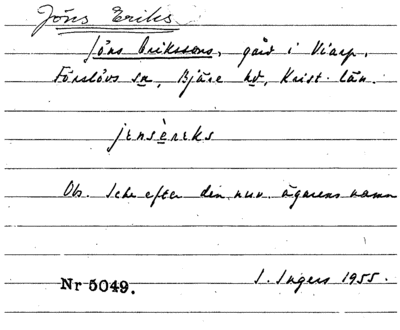 Jöns Eriks
Jöns Erikssons, gård i Viarp,
Förslövs sn, Bjäre hd, Krist. län.
jɛnsèreks
Ob. Icke efter den nuv. ägarens namn
Nr 5049.
I. Ingers 1955.